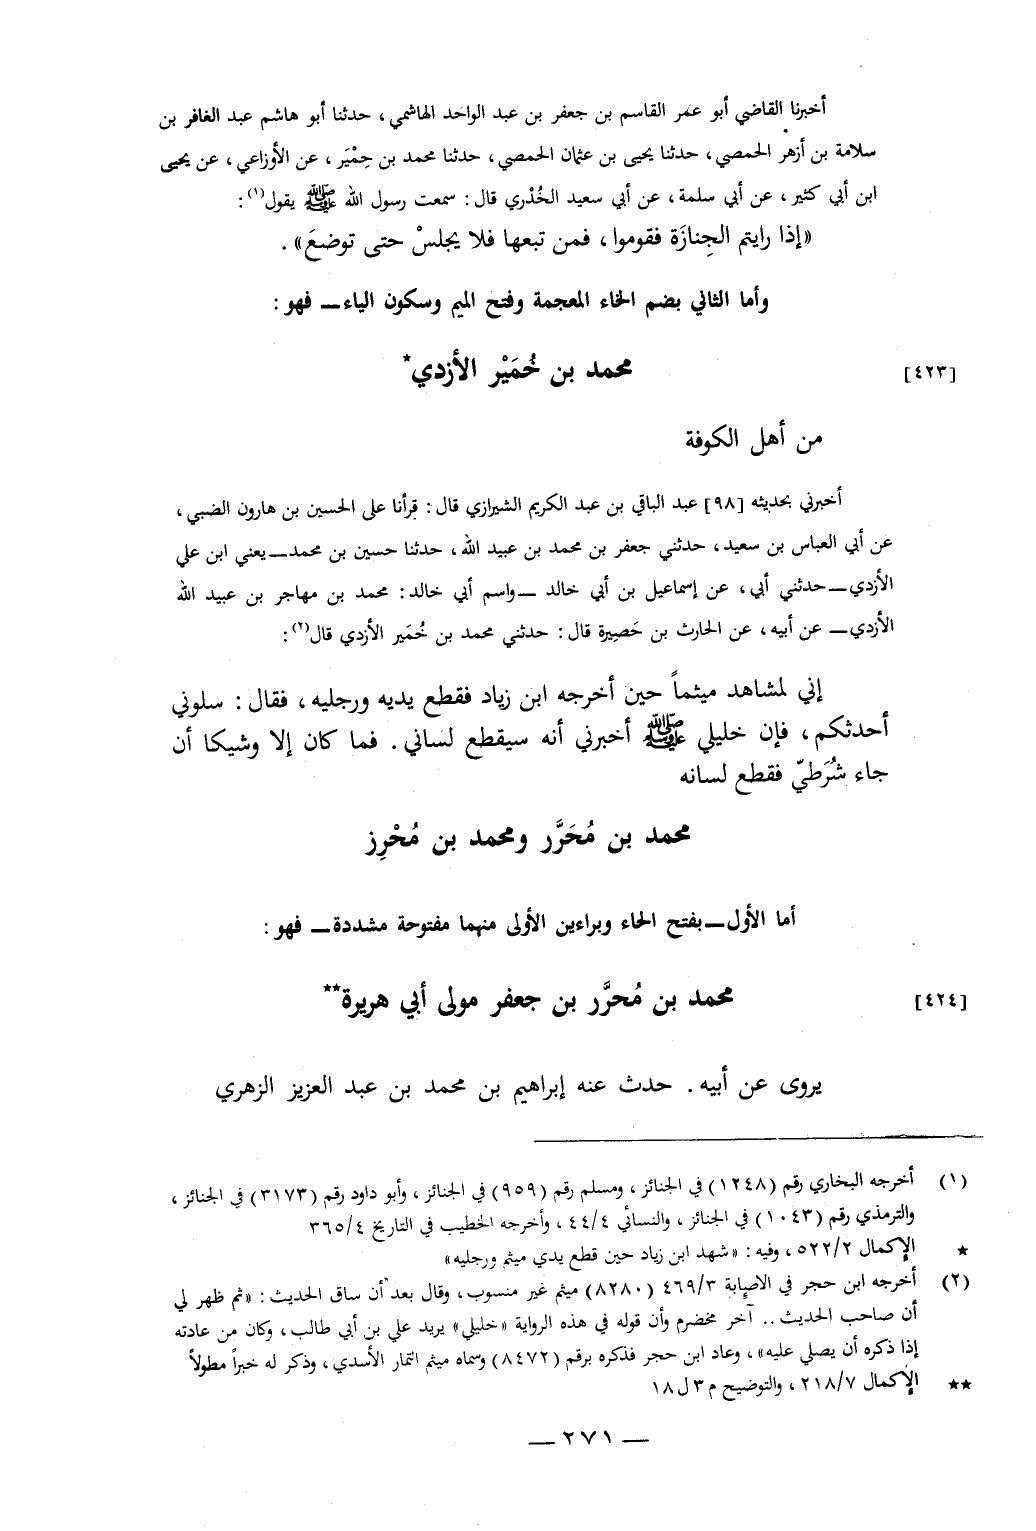 أخبرنا القاضي أبو عمر القاسم بن جعفر بن عبد الواحد الهاشمي، حدثنا أبو هاشم عبد الغافر بن
سلامة بن أزهر الحمصي، حدثنا يحيى بن عثمان الحمصي، حدثنا محمد بن حِمْيَر، عن الأوزاعي، عن يحيى
ابن أبي كثير، عن أبي سلمة، عن أبي سعيد الخُدْري قال: سمعت رسول الله ﷺ يقول(١):
«إذا رايتم الجِنازَة فقوموا، فمن تبعها فلا يجلسْ حتى توضعَ».
وأما الثاني بضم الخاء المعجمة وفتح الميم وسكون الياء ــ فهو:
[٤٢٣] محمد بن خُمَيْر الأزدي*
من أهل الكوفة
أخبرني بحديثه [٩٨] عبد الباقي بن عبد الكريم الشيرازي قال: قرأنا على الحسين بن هارون الضبي،
عن أبي العباس بن سعيد، حدثني جعفر بن محمد بن عبيد الله، حدثنا حسين بن محمد ــ يعني ابن علي
الأزدي ــ حدثني أبي، عن إسماعيل بن أبي خالد ــ واسم أبي خالد: محمد بن مهاجر بن عبيد الله
الأزدي ــ عن أبيه، عن الحارث بن حَصِيرة قال: حدثني محمد بن خُمَير الأزدي قال(٢):
إني لمشاهد ميثماً حين أخرجه ابن زياد فقطع يديه ورجليه، فقال: سلوني
أحدثكم، فإن خليلي ﷺ أخبرني أنه سيقطع لساني. فما كان إلا وشيكا أن
جاء شُرَطيّ فقطع لسانه
محمد بن مُحَرَّر ومحمد بن مُحْرِز
أما الأول ــ بفتح الحاء وبراءين الأولى منهما مفتوحة مشددة ــ فهو:
[٤٢٤] محمد بن مُحرَّر بن جعفر مولى أبي هريرة**
يروى عن أبيه. حدث عنه إبراهيم بن محمد بن عبد العزيز الزهري
(١) أخرجه البخاري رقم (١٢٤٨) في الجنائز، ومسلم رقم (٩٥٩) في الجنائز، وأبو داود رقم (٣١٧٣) في الجنائز،
والترمذي رقم (١٠٤٣) في الجنائز، والنسائي ٤٤/٤، وأخرجه الخطيب في التاريخ ٣٦٥/٤
* الإكمال ٥٢٢/٢، وفيه: «شهد ابن زياد حين قطع يدي ميثم ورجليه»
(٢) أخرجه ابن حجر في الاصابة ٤٦٩/٣ (٨٢٨٠) ميثم غير منسوب، وقال بعد أن ساق الحديث: «ثم ظهر لي
أن صاحب الحديث.. آخر مخضرم وأن قوله في هذه الرواية «خليلي» يريد علي بن أبي طالب، وكان من عادته
إذا ذكره أن يصلي عليه»، وعاد ابن حجر فذكره برقم (٨٤٧٢) وسماه ميثم التمار الأسدي، وذكر له خبراً مطولاً
** الإكمال ٢١٨/٧، والتوضيح م٣ل١٨
ــ ٢٧١ ــ